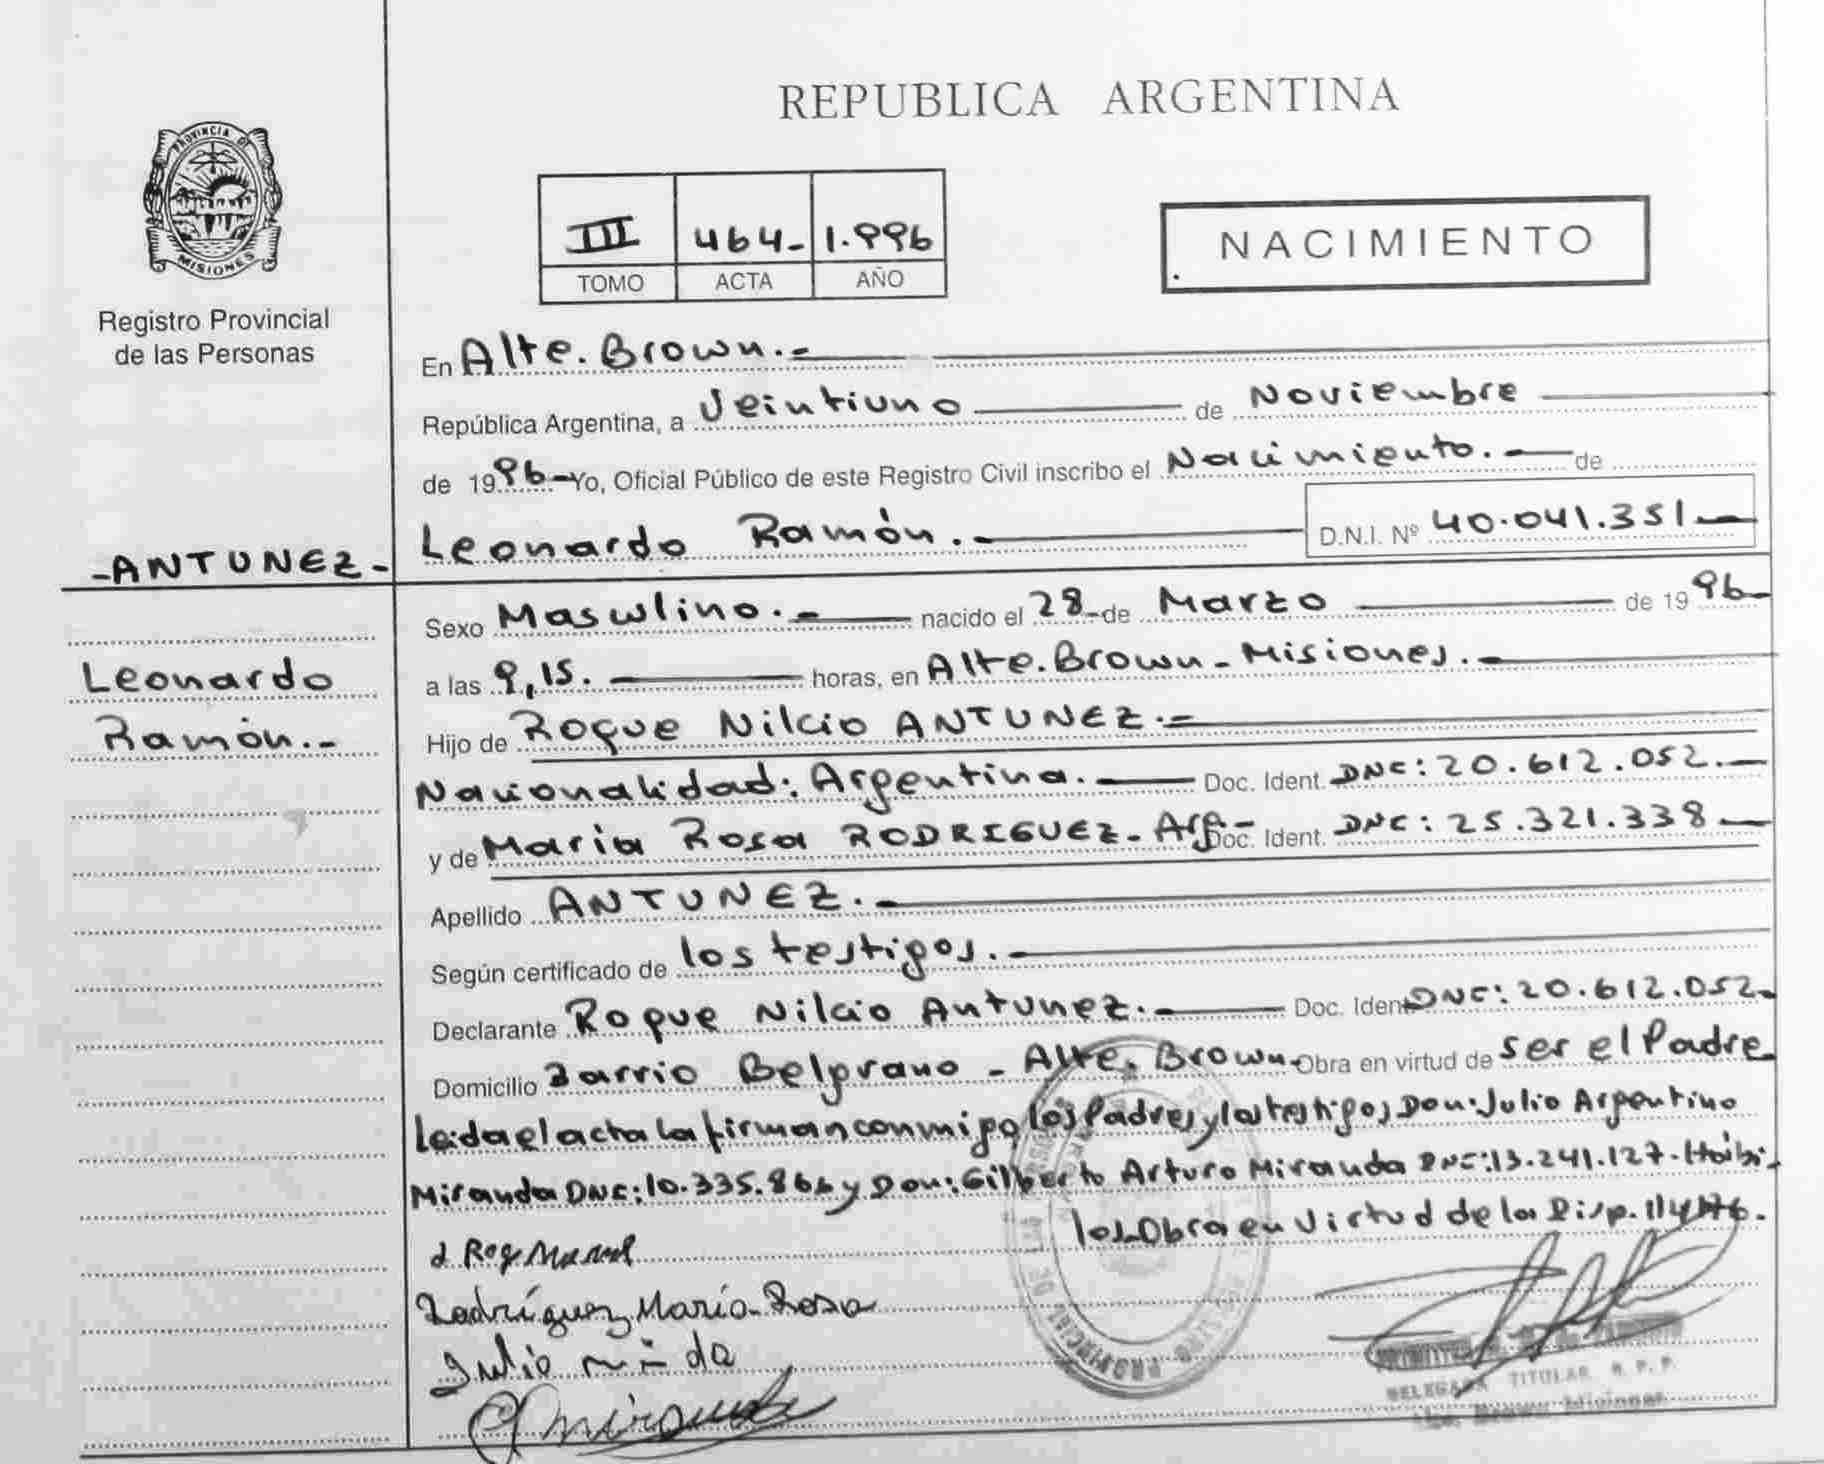 REPUBLICA ARGENTINA
PROVINCIA DE
MISIONES
Registro Provincial
de las Personas
III 464- 1.996
TOMO ACTA AÑO
NACIMIENTO
En Alte. Brown.-
República Argentina, a Veintiuno de Noviembre
de 1996- Yo, Oficial Público de este Registro Civil inscribo el Nacimiento.- de
Leonardo Ramón.- D.N.I. Nº 40.041.351-
-ANTUNEZ-
Leonardo
Ramón.-
Sexo Masculino.- nacido el 28- de Marzo de 1996-
a las 9,15. horas, en Alte. Brown - Misiones.-
Hijo de Roque Nilcio ANTUNEZ.-
Nacionalidad: Argentina.- Doc. Ident. DNI: 20.612.052.-
y de Maria Rosa RODRIGUEZ- Arg- Doc. Ident. DNI: 25.321.338-
Apellido ANTUNEZ.-
Según certificado de los testigos.-
Declarante Roque Nilcio Antunez.- Doc. Ident DNI: 20.612.052-
Domicilio Barrio Belgrano - Alte. Brown- Obra en virtud de ser el Padre
Leida el acta la firman conmigo los Padres y los testigos Don: Julio Argentino
Miranda DNI: 10.335.866 y Don: Gilberto Arturo Miranda DNI: 13.241.127. Habi-
les- Obra en Virtud de la Disp.
Rodríguez María Rosa
Julio
Miranda
PROVINCIAL DE LAS
DELEGADA TITULAR R. P. P.
Alte. Brown Misiones